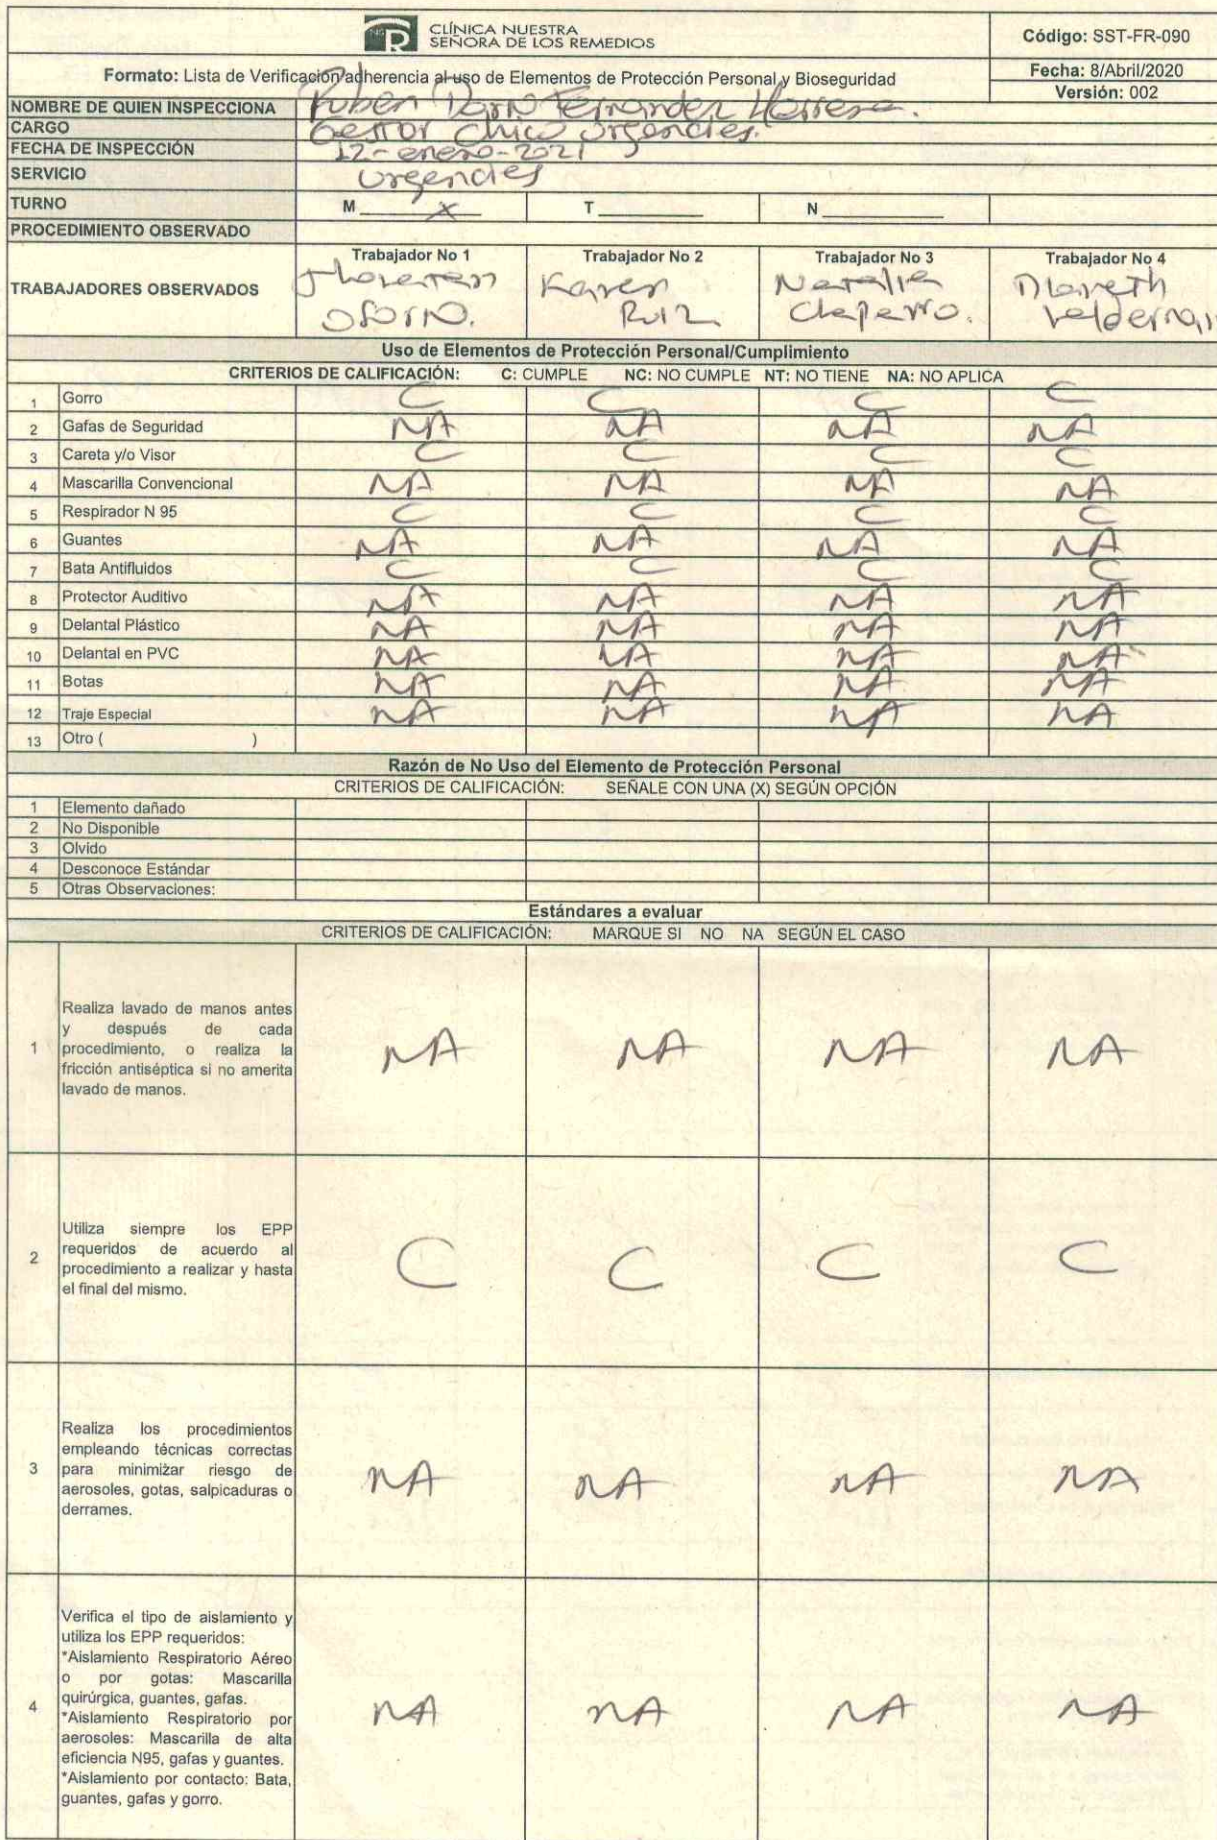 CLÍNICA NUESTRA
SEÑORA DE LOS REMEDIOS
Código: SST-FR-090
Formato: Lista de Verificación adherencia al uso de Elementos de Protección Personal y Bioseguridad
Fecha: 8/Abril/2020
Versión: 002
NOMBRE DE QUIEN INSPECCIONA Ruben Dario Fernandez Herrera.
CARGO Gestor Clinico urgencias.
FECHA DE INSPECCIÓN 12-enero-2021
SERVICIO urgencias
TURNO M X T N
PROCEDIMIENTO OBSERVADO
TRABAJADORES OBSERVADOS
Trabajador No 1 Trabajador No 2 Trabajador No 3 Trabajador No 4
Karen Natalia
Osorio. Ruiz Chaparro.
Uso de Elementos de Protección Personal/Cumplimiento
CRITERIOS DE CALIFICACIÓN: C: CUMPLE NC: NO CUMPLE NT: NO TIENE NA: NO APLICA
1 Gorro C C C C
2 Gafas de Seguridad NA NA NA NA
3 Careta y/o Visor C C C C
4 Mascarilla Convencional NA NA NA NA
5 Respirador N 95 C C C C
6 Guantes NA NA NA NA
7 Bata Antifluidos C C C C
8 Protector Auditivo NA NA NA NA
9 Delantal Plástico NA NA NA NA
10 Delantal en PVC NA NA NA NA
11 Botas NA NA NA NA
12 Traje Especial NA NA NA NA
13 Otro ( )
Razón de No Uso del Elemento de Protección Personal
CRITERIOS DE CALIFICACIÓN: SEÑALE CON UNA (X) SEGÚN OPCIÓN
1 Elemento dañado
2 No Disponible
3 Olvido
4 Desconoce Estándar
5 Otras Observaciones:
Estándares a evaluar
CRITERIOS DE CALIFICACIÓN: MARQUE SI NO NA SEGÚN EL CASO
Realiza lavado de manos antes
y después de cada
1 procedimiento, o realiza la NA NA NA NA
fricción antiséptica si no amerita
lavado de manos.
Utiliza siempre los EPP
requeridos de acuerdo al
2 procedimiento a realizar y hasta C C C C
el final del mismo.
Realiza los procedimientos
empleando técnicas correctas
3 para minimizar riesgo de NA NA NA NA
aerosoles, gotas, salpicaduras o
derrames.
Verifica el tipo de aislamiento y
utiliza los EPP requeridos:
*Aislamiento Respiratorio Aéreo
o por gotas: Mascarilla
4 quirúrgica, guantes, gafas. NA NA NA NA
*Aislamiento Respiratorio por
aerosoles: Mascarilla de alta
eficiencia N95, gafas y guantes.
*Aislamiento por contacto: Bata,
guantes, gafas y gorro.